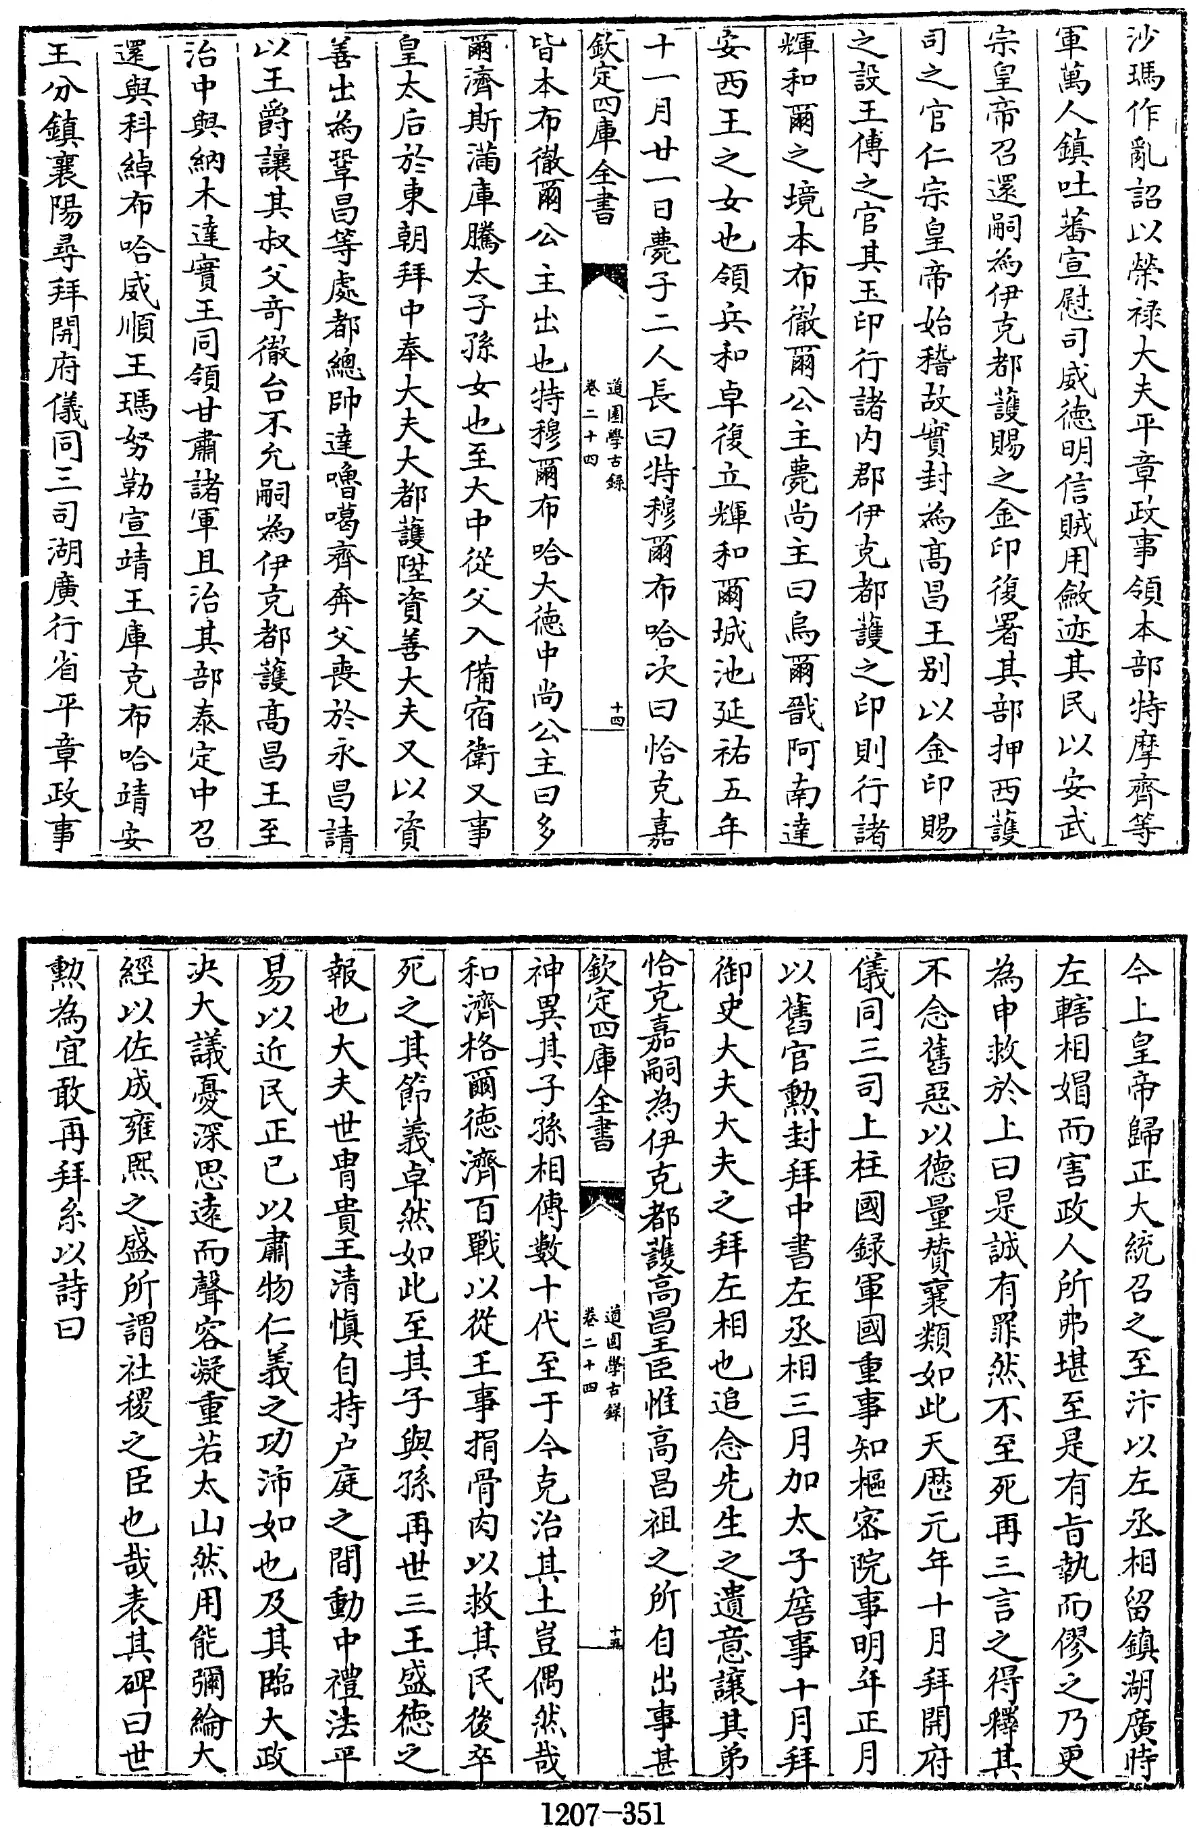 沙瑪作亂詔以榮禄大夫平章政事領本部特摩齊等
軍萬人鎮吐蕃宣慰司威德明信賊用斂迹其民以安武
宗皇帝召還嗣為伊克都護賜之金印復署其部押西護
司之官仁宗皇帝始稽故實封為高昌王别以金印賜
之設王傅之官其玉印行諸内郡伊克都護之印則行諸
輝和爾之境本布徹爾公主薨尚主曰烏爾戩阿南達
安西王之女也領兵和卓復立輝和爾城池延祐五年
十一月廿一日薨子二人長曰特穆爾布哈次曰恰克嘉
欽定四庫全書
道園學古録
卷二十四
十四
皆本布徹爾公主出也特穆爾布哈大德中尚公主曰多
爾濟斯滿庫騰太子孫女也至大中從父入備宿衛又事
皇太后於東朝拜中奉大夫大都護陞資善大夫又以資
善出為鞏昌等處都總帥達嚕噶齊奔父喪於永昌請
以王爵讓其叔父竒徹台不允嗣為伊克都護高昌王至
治中與納木達實王同領甘肅諸軍且治其部泰定中召
還與科綽布哈威順王瑪努勒宣靖王庫克布哈靖安
王分鎮襄陽尋拜開府儀同三司湖廣行省平章政事
今上皇帝歸正大統召之至汴以左丞相留鎮湖廣時
左轄相媢而害政人所弗堪至是有㫖執而僇之乃更
為申救於上曰是誠有罪然不至死再三言之得釋其
不念舊惡以德量賛襄類如此天厯元年十月拜開府
儀同三司上柱國録軍國重事知樞密院事明年正月
以舊官勲封拜中書左丞相三月加太子詹事十月拜
御史大夫大夫之拜左相也追念先生之遺意讓其弟
恰克嘉嗣為伊克都護高昌王臣惟高昌祖之所自出事甚
欽定四庫全書
道園學古録
卷二十四
十五
神異其子孫相傳數十代至于今克治其土豈偶然哉
和濟格爾德濟百戰以從王事捐骨肉以救其民後卒
死之其節義卓然如此至其子與孫再世三王盛德之
報也大夫世胄貴王清慎自持户庭之間動中禮法平
易以近民正己以肅物仁義之功沛如也及其臨大政
决大議憂深思遠而聲容凝重若太山然用能彌綸大
經以佐成雍熙之盛所謂社稷之臣也哉表其碑曰世
勲為宜敢再拜系以詩曰
1207-351